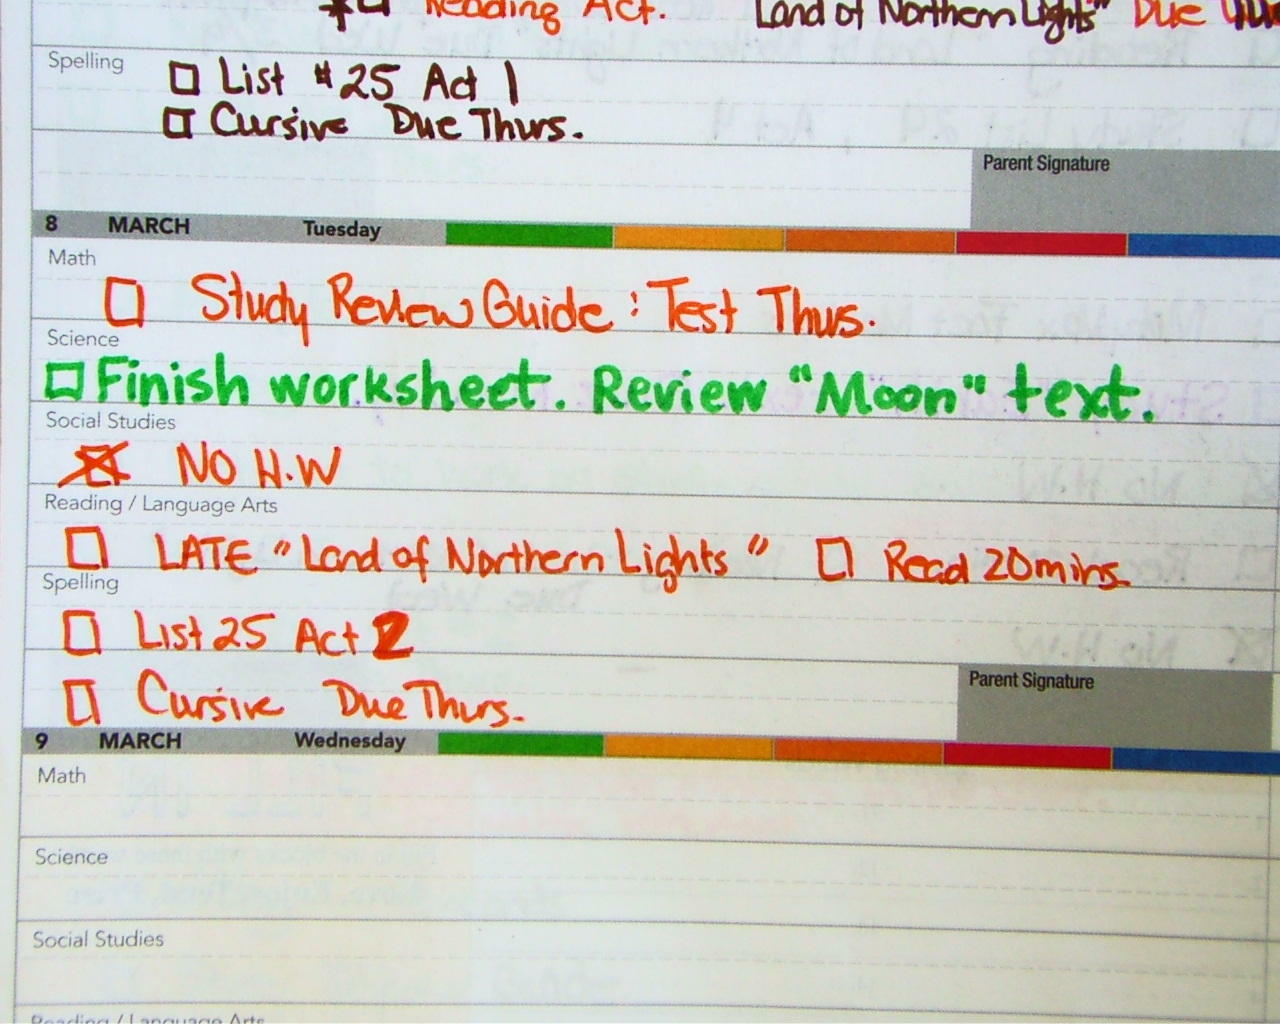 Reading Act. "Land of Northern Lights" Due
Spelling
List #25 Act 1
Cursive Due Thurs.
Parent Signature
8 MARCH Tuesday
Math
Study Review Guide : Test Thus.
Science
Finish worksheet. Review "Moon" text.
Social Studies
NO H.W
Reading / Language Arts
LATE "Land of Northern Lights" Read 20mins.
Spelling
List 25 Act 2
Cursive Due Thurs.
Parent Signature
9 MARCH Wednesday
Math
Science
Social Studies
Reading / Language Arts